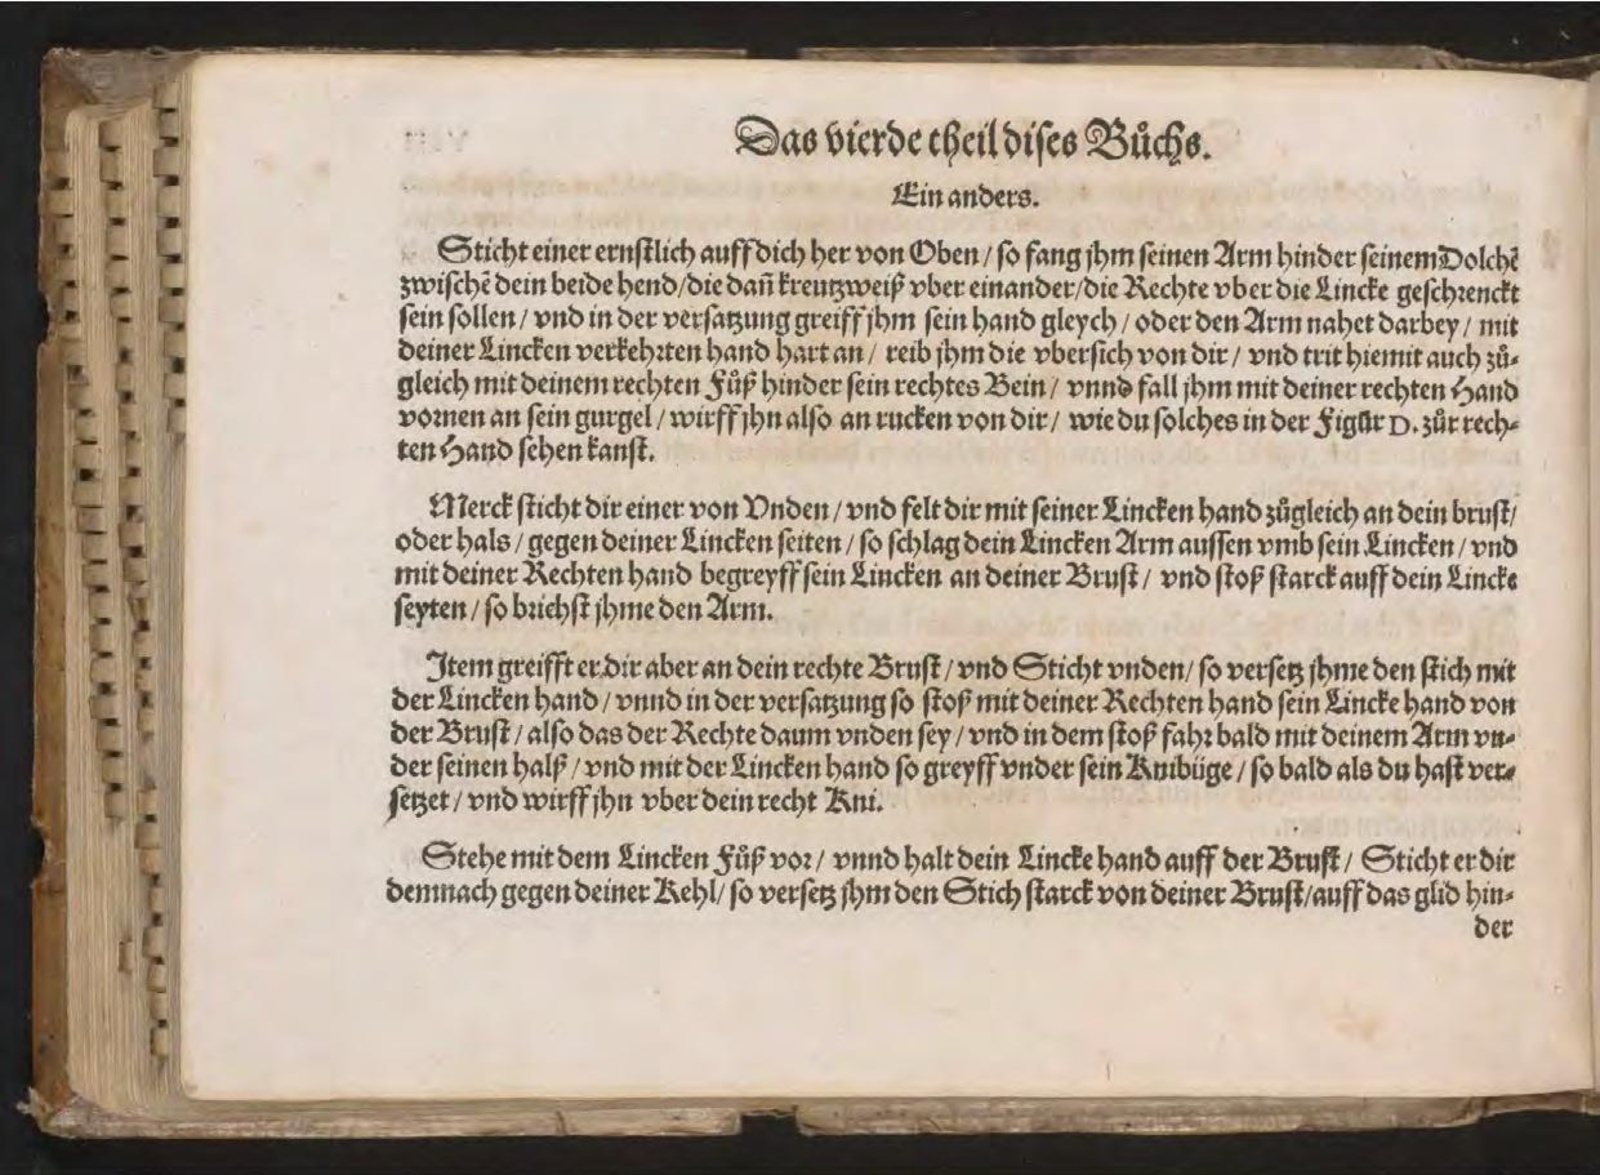 Das vierde theil dises Bůchs.
Ein anders.
Sticht einer ernstlich auff dich her von Oben / so fang jhm seinen Arm hinder seinem Dolchē
zwischē dein beide hend/die dañ kreutzweiß vber einander/die Rechte vber die Lincke geschrenckt
sein sollen / vnd in der versatzung greiff jhm sein hand gleych / oder den Arm nahet darbey / mit
deiner Lincken verkehrten hand hart an / reib jhm die vbersich von dir / vnd trit hiemit auch zů-
gleich mit deinem rechten Fůß hinder sein rechtes Bein / vnnd fall jhm mit deiner rechten Hand
vornen an sein gurgel / wirff jhn also an rucken von dir / wie du solches in der Figůr D. zůr rech-
ten Hand sehen kanst.
Merck sticht dir einer von Vnden / vnd felt dir mit seiner Lincken hand zůgleich an dein brust/
oder hals / gegen deiner Lincken seiten / so schlag dein Lincken Arm aussen vmb sein Lincken / vnd
mit deiner Rechten hand begreyff sein Lincken an deiner Brust / vnd stoß starck auff dein Lincke
seyten / so brichst jhme den Arm.
Item greifft er dir aber an dein rechte Brust / vnd Sticht vnden/ so versetz jhme den stich mit
der Lincken hand / vnnd in der versatzung so stoß mit deiner Rechten hand sein Lincke hand von
der Brust / also das der Rechte daum vnden sey / vnd in dem stoß fahr bald mit deinem Arm vn-
der seinen halß / vnd mit der Lincken hand so greyff vnder sein Knibüge / so bald als du hast ver-
setzet / vnd wirff jhn vber dein recht Kni.
Stehe mit dem Lincken Fůß vor / vnnd halt dein Lincke hand auff der Brust / Sticht er dir
demnach gegen deiner Kehl/ so versetz jhm den Stich starck von deiner Brust/auff das glid hin-
der